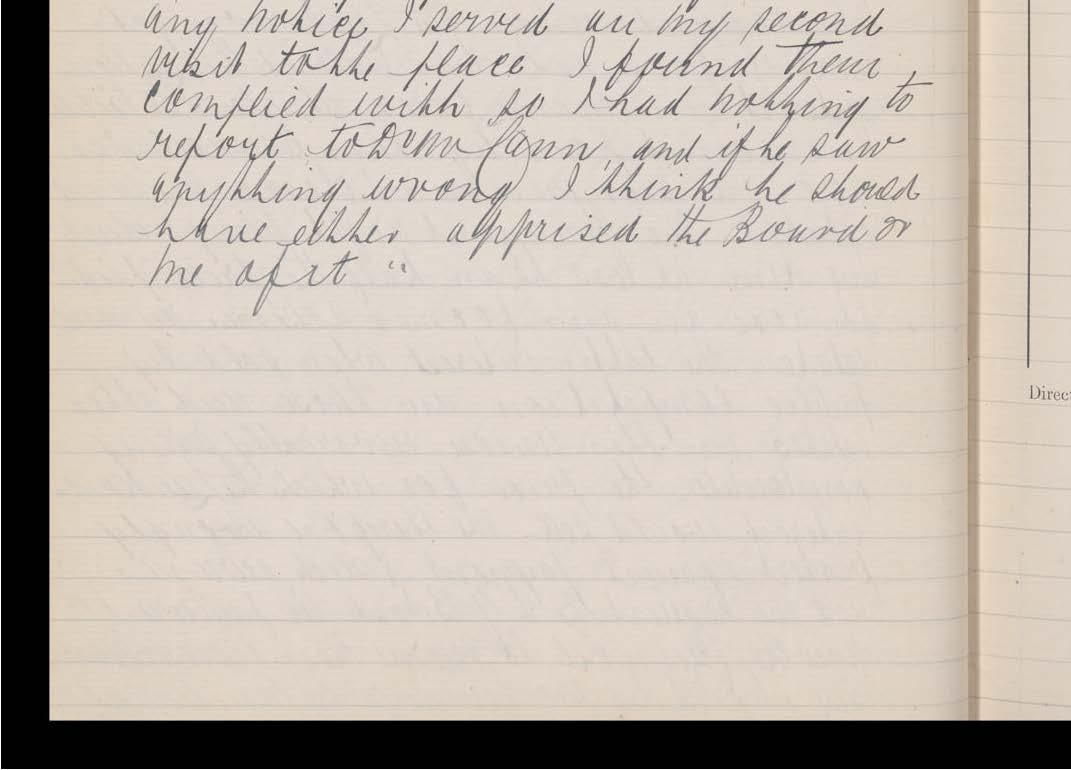 any notice I served on my second
visit to the place I found them
complied with so I had nothing to
report to Dr McCann, and if he saw
anything wrong I think he should
have either apprised the Board or
me of it "
Direct